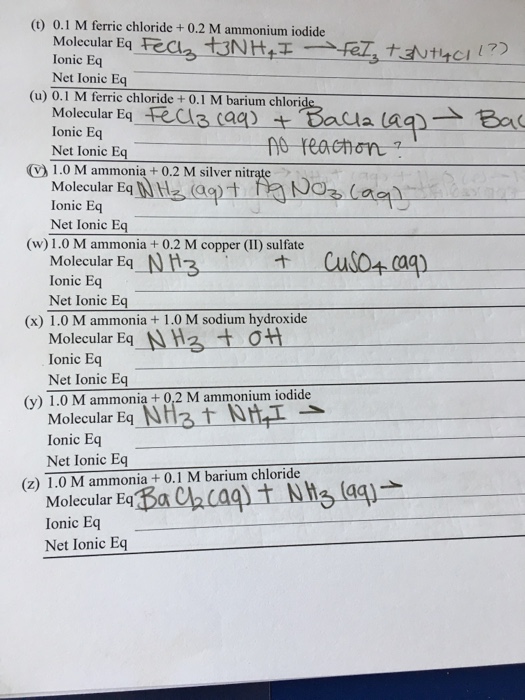 (t) 0.1 M ferric chloride + 0.2 M ammonium iodide
Molecular Eq FeCl3 + 3NH4I → FeI3 + 3NH4Cl (?)
Ionic Eq
Net Ionic Eq
(u) 0.1 M ferric chloride + 0.1 M barium chloride
Molecular Eq FeCl3 (aq) + BaCl2 (aq) → Bac
Ionic Eq
Net Ionic Eq no reaction ?
(v) 1.0 M ammonia + 0.2 M silver nitrate
Molecular Eq NH3 (aq) + AgNO3 (aq)
Ionic Eq
Net Ionic Eq
(w) 1.0 M ammonia + 0.2 M copper (II) sulfate
Molecular Eq NH3 + CuSO4 (aq)
Ionic Eq
Net Ionic Eq
(x) 1.0 M ammonia + 1.0 M sodium hydroxide
Molecular Eq NH3 + OH
Ionic Eq
Net Ionic Eq
(y) 1.0 M ammonia + 0.2 M ammonium iodide
Molecular Eq NH3 + NH4I →
Ionic Eq
Net Ionic Eq
(z) 1.0 M ammonia + 0.1 M barium chloride
Molecular Eq BaCl2 (aq) + NH3 (aq) →
Ionic Eq
Net Ionic Eq